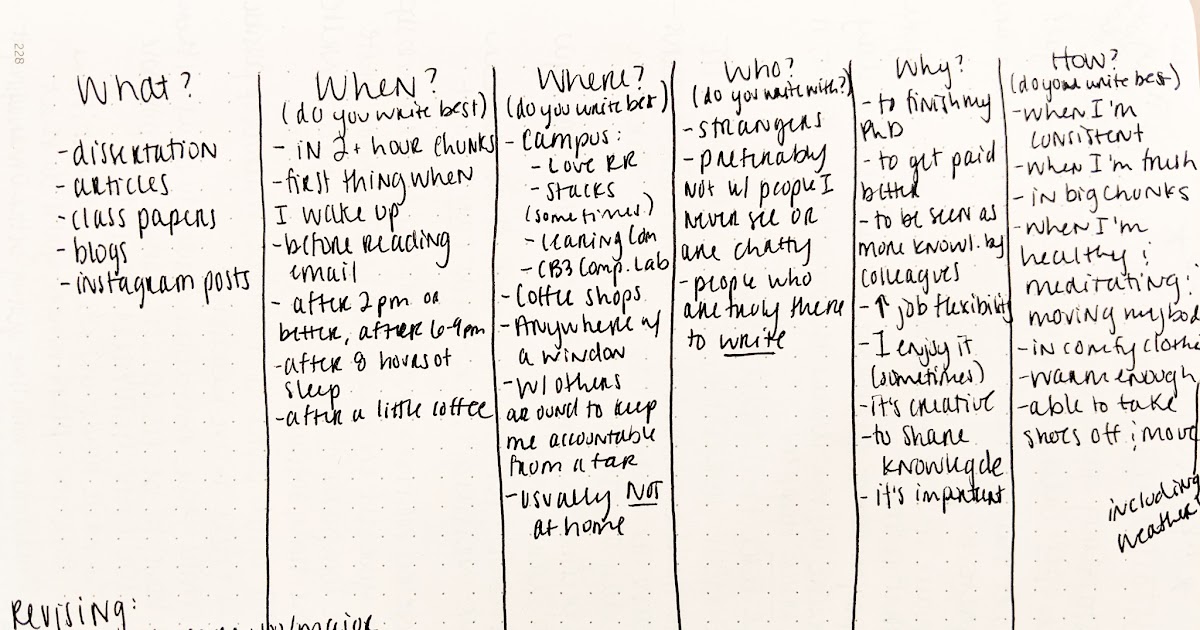 228
What?
-dissertation
-articles
-class papers
-blogs
-instagram posts
When?
(do you write best)
- in 2+ hour chunks
-first thing when
I wake up
-before reading
email
- after 2pm or
better, after 6-9pm
-after 8 hours of
sleep
-after a little coffee
Where?
(do you write best)
-Campus:
-Love RR
-Stacks
(sometimes)
-Learning Com
-CB3 Comp. Lab
-Coffee shops
-Anywhere w/
a window
-w/ others
around to keep
me accountable
from afar
-usually NOT
at home
Who?
(do you write with?)
-strangers
-preferably
not w/ people I
never see or
are chatty
-people who
are truly there
to write
Why?
-to finish my
PhD
-to get paid
better
-to be seen as
more knowl. by
colleagues
-↑ job flexibility
-I enjoy it
(sometimes)
-it's creative
-to share
knowlegde
-it's important
How?
(do you write best)
-when I'm
consistent
-when I'm fresh
-in big chunks
-when I'm
healthy &
meditating &
moving my bod
-in comfy clothe
-warm enough
-able to take
shoes off & move
including
weather!
Revising: